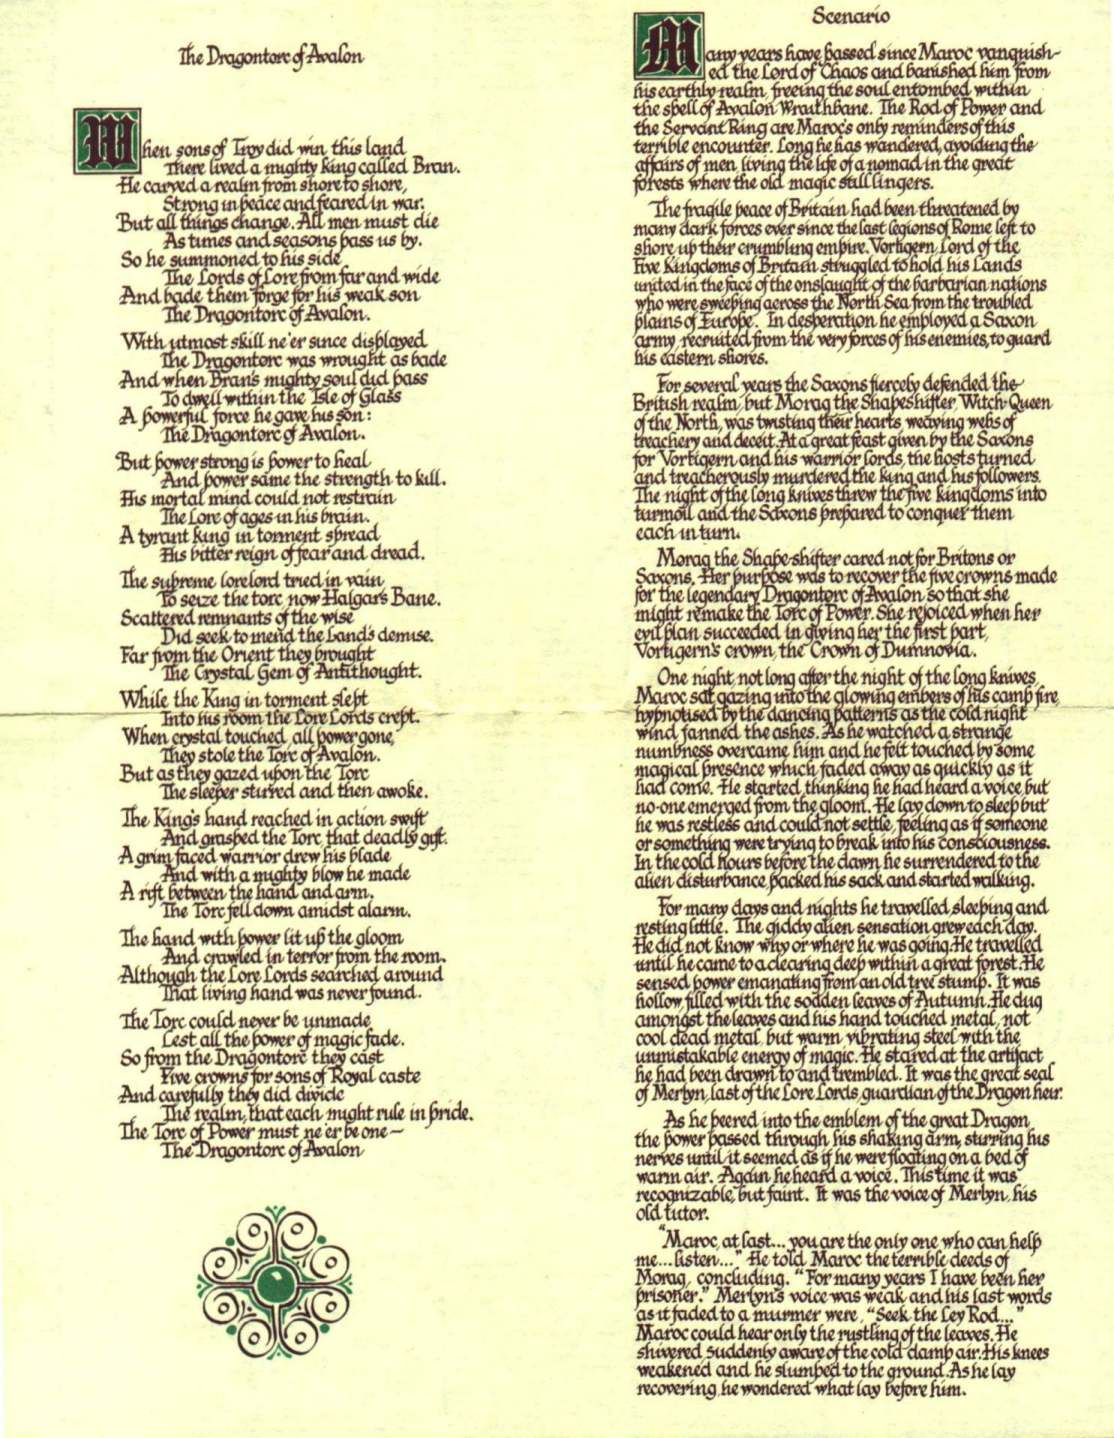 The Dragontorc of Avalon
When sons of Troy did win this land
There lived a mighty king called Bran.
He carved a realm from shore to shore,
Strong in peace and feared in war.
But all things change. All men must die
As times and seasons pass us by.
So he summoned to his side
The Lords of Lore from far and wide
And bade them forge for his weak son
The Dragontorc of Avalon.
With utmost skill ne'er since displayed
The Dragontorc was wrought as bade
And when Bran's mighty soul did pass
To dwell within the Isle of Glass
A powerful force he gave his son:
The Dragontorc of Avalon.
But power strong is power to heal
And power same the strength to kill.
His mortal mind could not restrain
The Lore of ages in his brain.
A tyrant king in torment spread
His bitter reign of fear and dread.
The supreme lorelord tried in vain
To seize the torc now Halgar's Bane.
Scattered remnants of the wise
Did seek to mend the Land's demise.
Far from the Orient they brought
The Crystal Gem of Antithought.
While the King in torment slept
Into his room the Lore Lords crept.
When crystal touched, all power gone,
They stole the Torc of Avalon.
But as they gazed upon the Torc
The sleeper stirred and then awoke.
The King's hand reached in action swift
And grasped the Torc, that deadly gift.
A grim faced warrior drew his blade
And with a mighty blow he made
A rift between the hand and arm.
The Torc fell down amidst alarm.
The hand with power lit up the gloom
And crawled in terror from the room.
Although the Lore Lords searched around
That living hand was never found.
The Torc could never be unmade
Lest all the power of magic fade.
So from the Dragontorc they cast
Five crowns for sons of Royal caste
And carefully they did divide
The realm, that each might rule in pride.
The Torc of Power must ne'er be one—
The Dragontorc of Avalon
Scenario
Many years have passed since Maroc vanquish-
ed the Lord of Chaos and banished him from
his earthly realm, freeing the soul entombed within
the spell of Avalon Wraithbane. The Rod of Power and
the Servant Ring are Maroc's only reminders of this
terrible encounter. Long he has wandered, avoiding the
affairs of men, living the life of a nomad in the great
forests where the old magic still lingers.
The fragile peace of Britain had been threatened by
many dark forces ever since the last legions of Rome left to
shore up their crumbling empire. Vortigern, Lord of the
Five Kingdoms of Britain struggled to hold his Lands
united in the face of the onslaught of the barbarian nations
who were sweeping across the North Sea from the troubled
plains of Europe. In desperation he employed a Saxon
army, recruited from the very forces of his enemies, to guard
his eastern shores.
For several years the Saxons fiercely defended the
British realm, but Morag the Shapeshifter, Witch-Queen
of the North, was twisting their hearts, weaving webs of
treachery and deceit. At a great feast given by the Saxons
for Vortigern and his warrior lords, the hosts turned
and treacherously murdered the king and his followers.
The night of the long knives threw the five kingdoms into
turmoil and the Saxons prepared to conquer them
each in turn.
Morag the Shape-shifter cared not for Britons or
Saxons. Her purpose was to recover the five crowns made
for the legendary Dragontorc of Avalon so that she
might remake the Torc of Power. She rejoiced when her
evil plan succeeded in giving her the first part,
Vortigern's crown, the Crown of Dumnovia.
One night, not long after the night of the long knives,
Maroc sat gazing into the glowing embers of his camp fire,
hypnotised by the dancing patterns as the cold night
wind fanned the ashes. As he watched a strange
numbness overcame him and he felt touched by some
magical presence which faded away as quickly as it
had come. He started, thinking he had heard a voice, but
no-one emerged from the gloom. He lay down to sleep but
he was restless and could not settle, feeling as if someone
or something were trying to break into his consciousness.
In the cold hours before the dawn he surrendered to the
alien disturbance, packed his sack and started walking.
For many days and nights he travelled, sleeping and
resting little. The giddy alien sensation grew each day.
He did not know why or where he was going. He travelled
until he came to a clearing deep within a great forest. He
sensed power emanating from an old tree stump. It was
hollow, filled with the sodden leaves of Autumn. He dug
amongst the leaves and his hand touched metal, not
cool dead metal, but warm vibrating steel with the
unmistakable energy of magic. He stared at the artifact
he had been drawn to and trembled. It was the great seal
of Merlyn, last of the Lore Lords, guardian of the Dragon heir.
As he peered into the emblem of the great Dragon,
the power passed through his shaking arm, stirring his
nerves until it seemed as if he were floating on a bed of
warm air. Again he heard a voice. This time it was
recognizable, but faint. It was the voice of Merlyn, his
old tutor.
"Maroc, at last... you are the only one who can help
me... listen..." He told Maroc the terrible deeds of
Morag, concluding. "For many years I have been her
prisoner." Merlyn's voice was weak and his last words
as it faded to a murmer were, "Seek the Ley Rod..."
Maroc could hear only the rustling of the leaves. He
shivered, suddenly aware of the cold damp air. His knees
weakened and he slumped to the ground. As he lay
recovering, he wondered what lay before him.